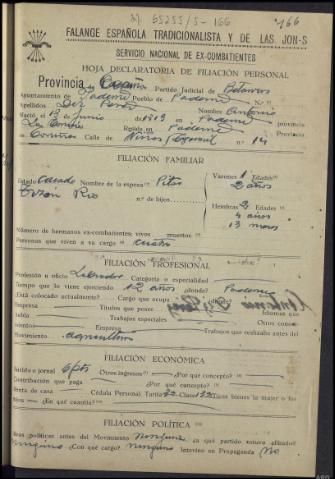 166
FALANGE ESPAÑOLA TRADICIONALISTA Y DE LAS JON-S
SERVICIO NACIONAL DE EX-COMBATIENTES
HOJA DECLARATORIA DE FILIACIÓN PERSONAL
Provincia Partido Judicial de Betanzos
Ayuntamiento de Paderne Pueblo de Paderne N.º
Apellidos Nombre Antonio
Nació el 13 de Junio de 1913 en Paderne provincia
La Coruña Reside en Paderne provincia
Coruña Calle de n.º 14
FILIACIÓN FAMILIAR
Estado casado Nombre de la esposa Pilar Varones 1 Edades
Rio n.º de hijos 2 años
Hembras 2 Edades
4 años
13 meses
Número de hermanos ex-combatientes: vivos muertos
Personas que viven a su cargo cuatro
FILIACIÓN PROFESIONAL
Profesión u oficio Labrador Categoría o especialidad
Tiempo que la viene ejerciendo 12 años ¿dónde? Paderne
Está colocado actualmente? Cargo que ocupa
Empresa Títulos Idiomas que
Trabajos especiales Otros conoc.
Empresa Trabajos que realizaba antes del
Movimiento agricultura
FILIACIÓN ECONÓMICA
Sueldo o jornal 6 pts Otros ingresos? ¿Por qué concepto?
Contribución que paga ¿Por qué concepto?
Renta de casa Cédula Personal Tarifa Clase Tiene bienes la mujer o los
hijos ¿En qué cuantía?
FILIACIÓN POLÍTICA
Ideas políticas antes del Movimiento Ninguna en qué partido estuvo afiliado?
Ninguno ¿Con qué cargo? ninguno Intervino en Propaganda No